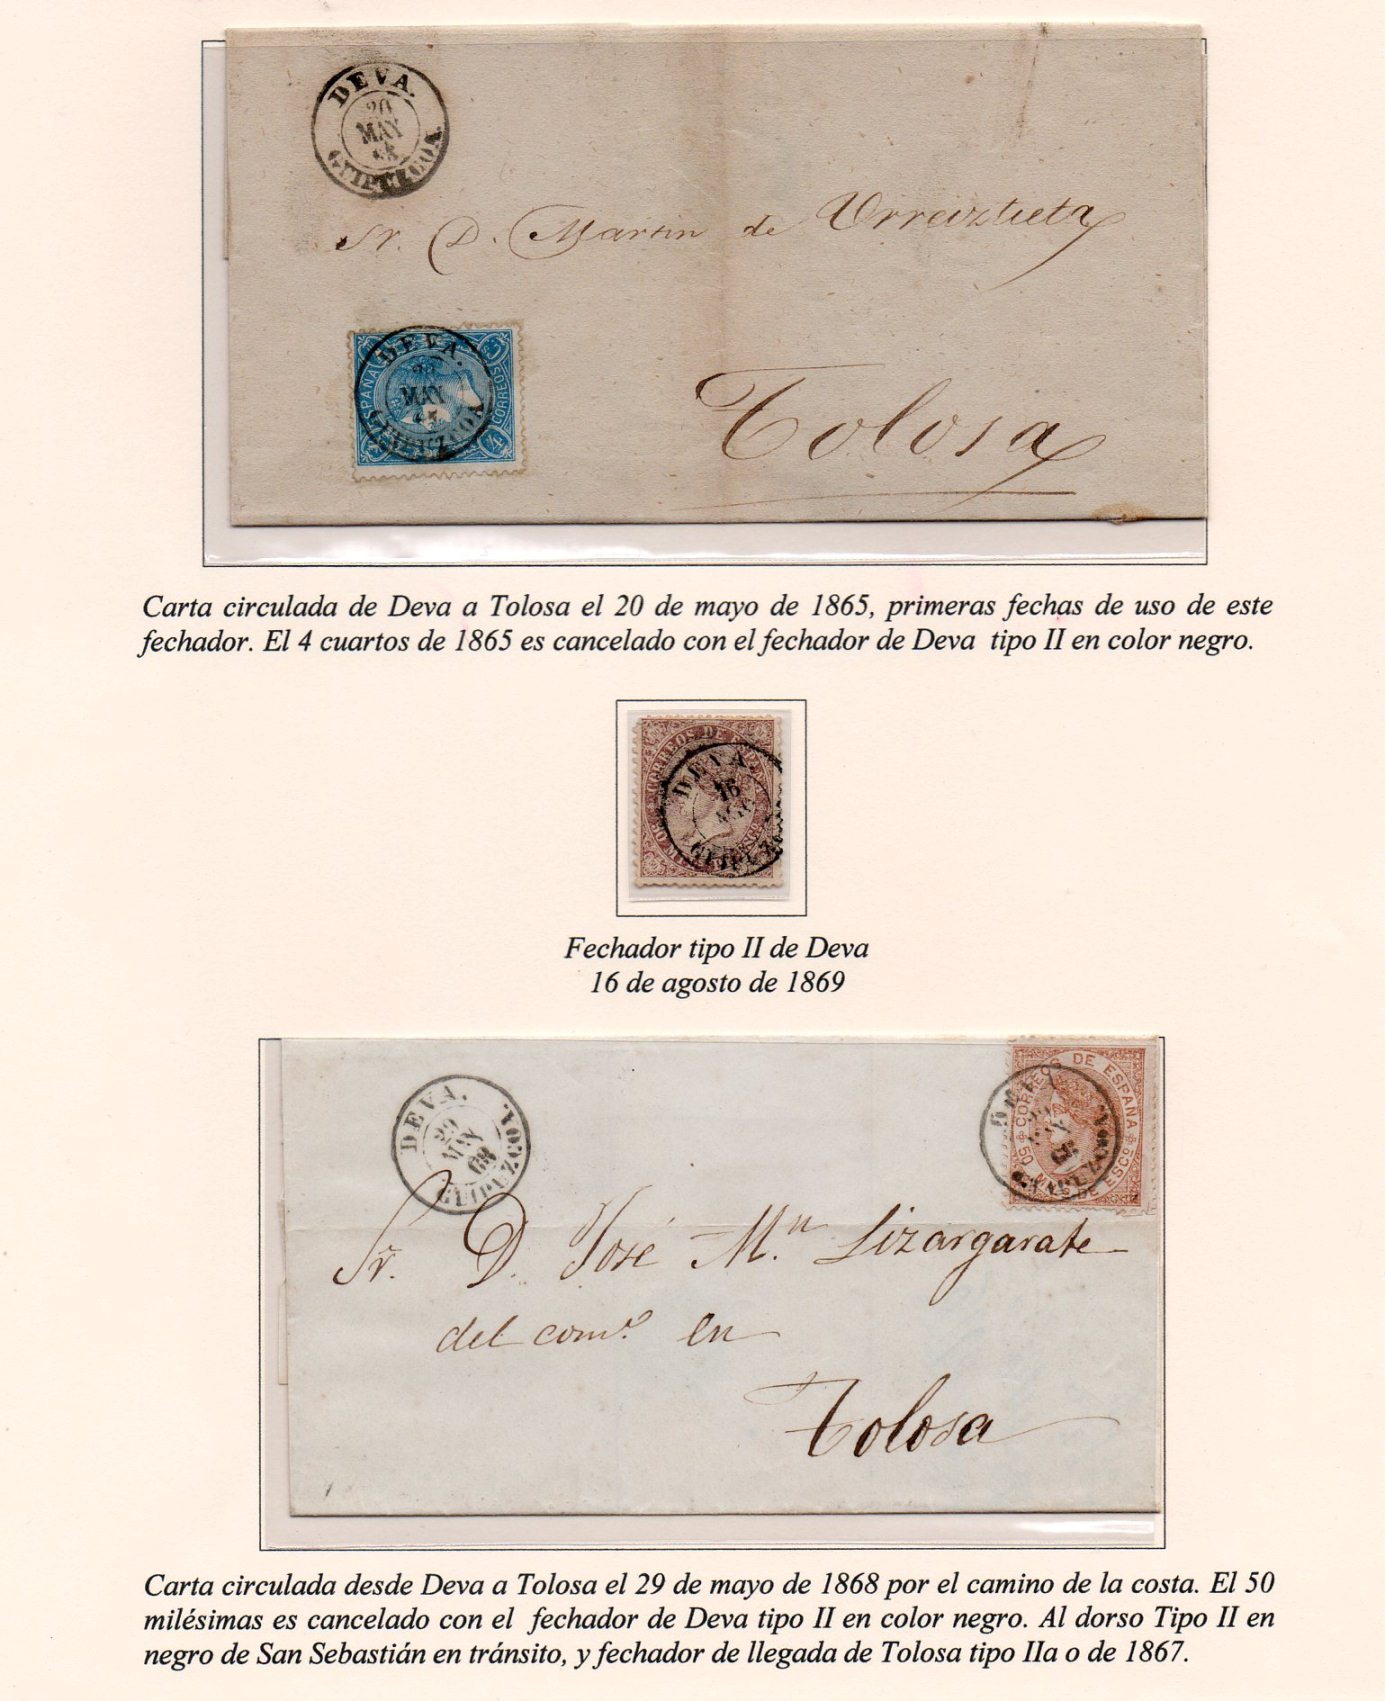 DEVA.
20
MAY
65
GUIPUZCOA.
Sr. D. Martin de Urreiztieta
ESPAÑA
CORREOS
4
DEVA.
MAY
GUIPUZCOA
Tolosa
Carta circulada de Deva a Tolosa el 20 de mayo de 1865, primeras fechas de uso de este
fechador. El 4 cuartos de 1865 es cancelado con el fechador de Deva tipo II en color negro.
CORREOS DE ESPAÑA
DEVA.
16
AGO
GUIPUZ
Fechador tipo II de Deva
16 de agosto de 1869
DEVA.
29
MAY
68
GUIPUZCOA.
CORREOS DE ESPAÑA
50 MILS DE ESCO
Sr. D. José M.n Lizargarate
del como. en
Tolosa
Carta circulada desde Deva a Tolosa el 29 de mayo de 1868 por el camino de la costa. El 50
milésimas es cancelado con el fechador de Deva tipo II en color negro. Al dorso Tipo II en
negro de San Sebastián en tránsito, y fechador de llegada de Tolosa tipo IIa o de 1867.